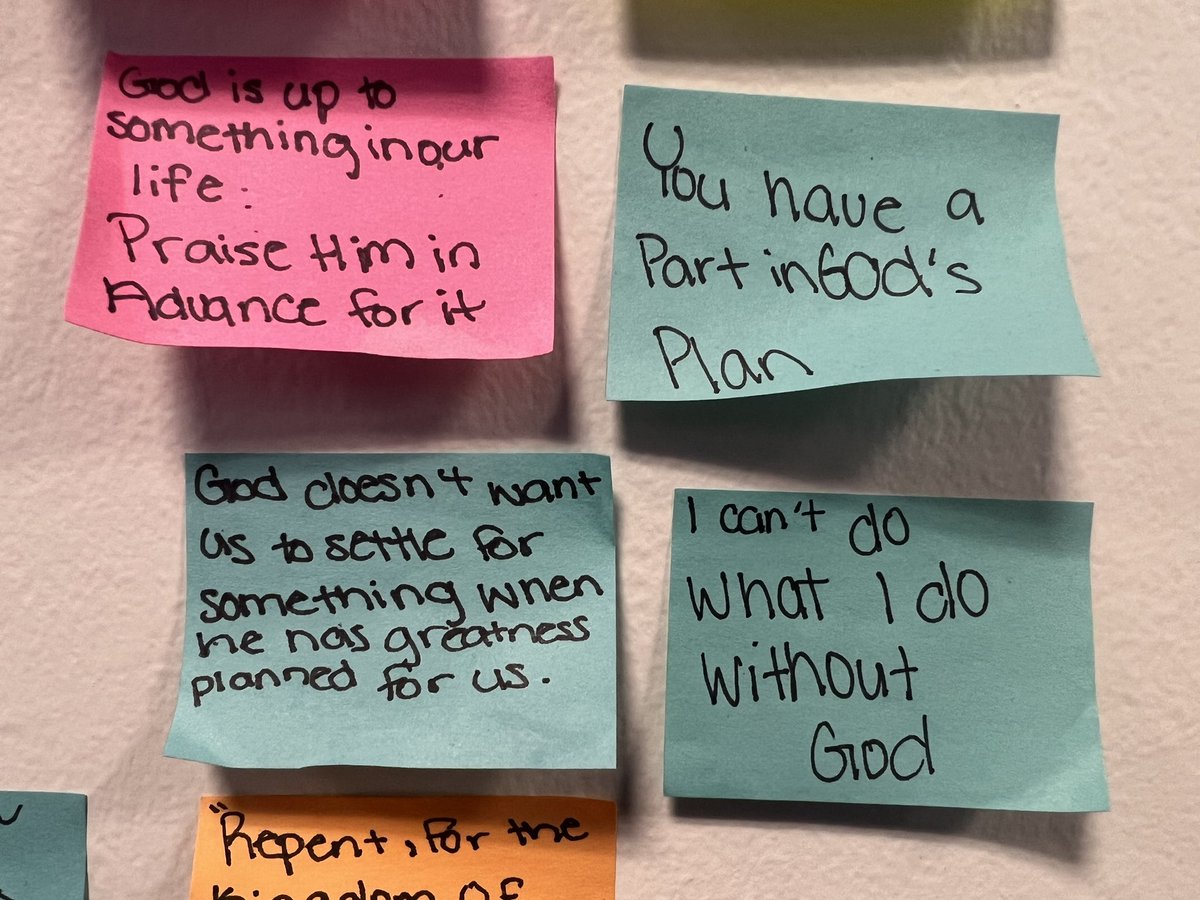 God is up to
something in our
life:
Praise Him in
Advance for it
You have a
Part in God's
Plan
God doesn't want
us to settle for
something when
he has greatness
planned for us.
I can't do
what I do
without
God
"Repent, For the
Kingdom Of